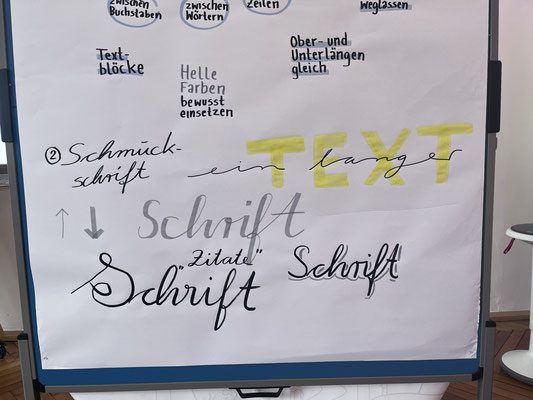 zwischen
Buchstaben
zwischen
Wörtern
Zeilen
weglassen
Text-
blöcke
Helle
Farben
bewusst
einsetzen
Ober- und
Unterlängen
gleich
② Schmuck-
schrift
ein langer TEXT
↑ ↓ Schrift
"Zitate"
Schrift
Schrift